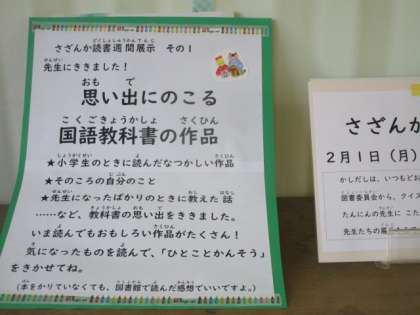 さざんか読書週間展示 その1
先生にききました!
思い出にのこる
国語教科書の作品
★小学生のときに読んだなつかしい作品
★そのころの自分のこと
★先生になったばかりのときに教えた話
……など、教科書の思い出をききました。
いま読んでもおもしろい作品がたくさん!
気になったものを読んで、「ひとことかんそう」
をきかせてね。
(本をかりていなくても、図書館で読んだ感想でいいですよ。)
さざんか
2月1日(月)
かしだしは、いつもどお
図書委員会から、クイズ
たんにんの先生に こた
先生たちの展